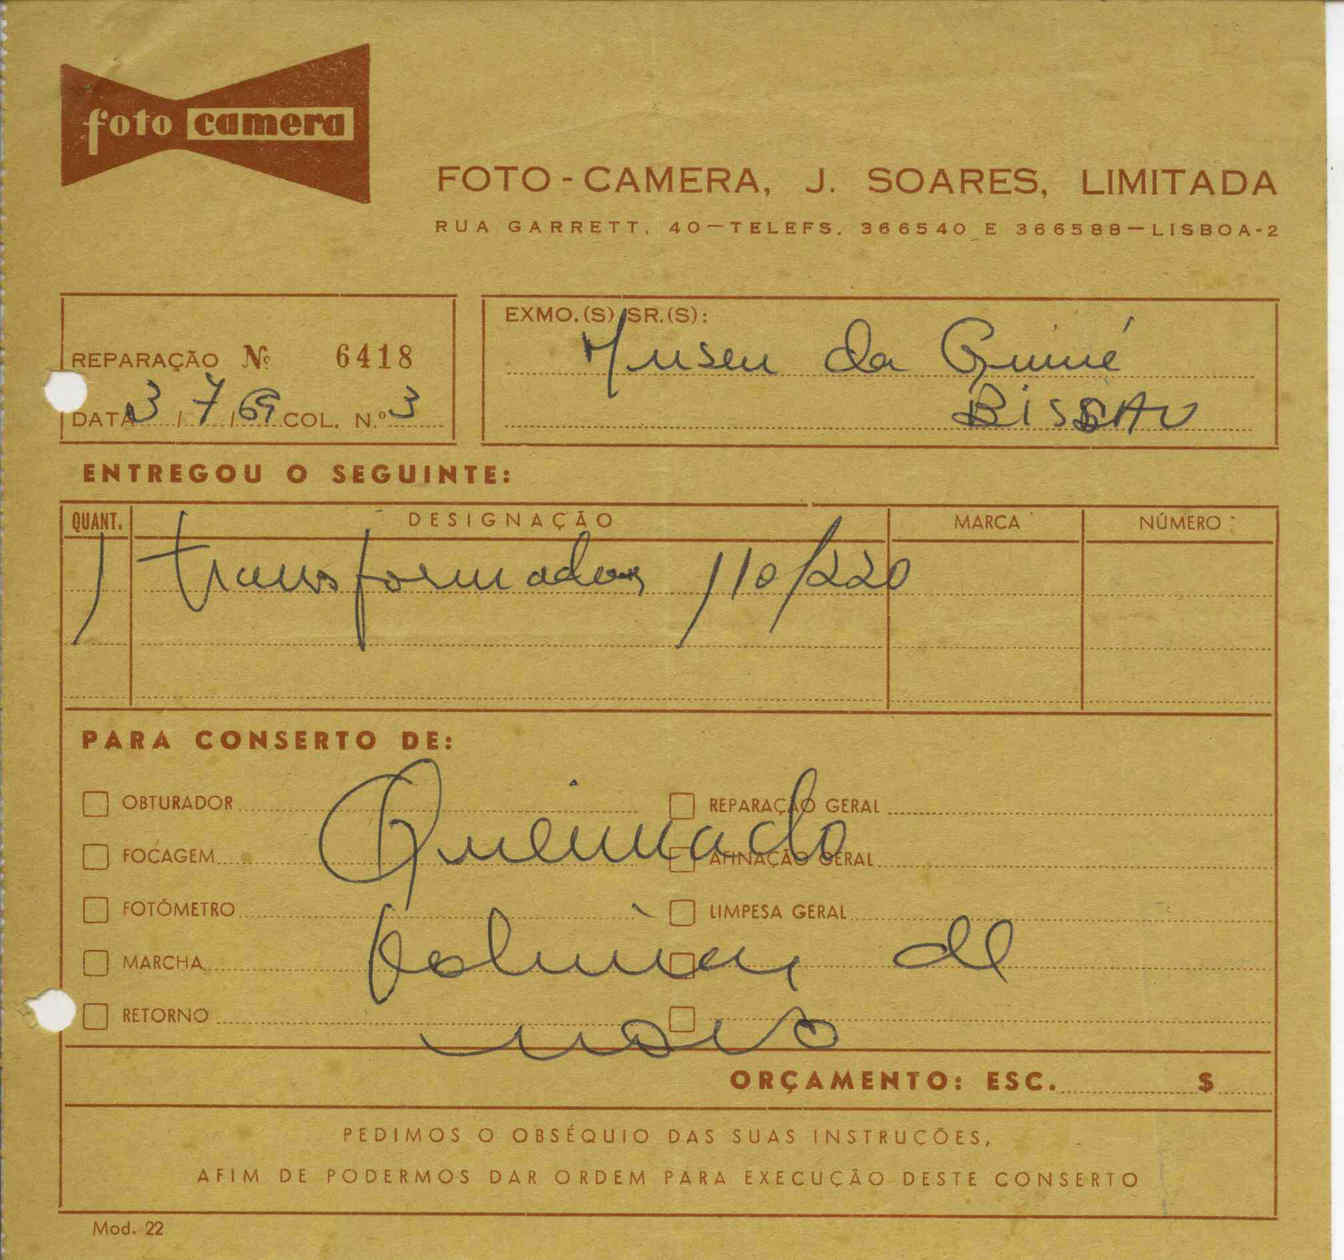 foto camera
FOTO-CAMERA, J. SOARES, LIMITADA
RUA GARRETT, 40—TELEFS. 366540 E 366588—LISBOA-2
REPARAÇÃO Nº 6418
DATA 3/7/69 COL. N.º 3
EXMO.(S) SR.(S):
Museu da Guiné
BISSAU
ENTREGOU O SEGUINTE:
QUANT. DESIGNAÇÃO MARCA NÚMERO
1 transformador 110/220
PARA CONSERTO DE:
OBTURADOR REPARAÇÃO GERAL
Queimado
FOCAGEM AFINAÇÃO GERAL
FOTÓMETRO LIMPESA GERAL
MARCHA de
RETORNO
novo
ORÇAMENTO: ESC. $
PEDIMOS O OBSÉQUIO DAS SUAS INSTRUCÕES,
AFIM DE PODERMOS DAR ORDEM PARA EXECUÇÃO DESTE CONSERTO
Mod. 22